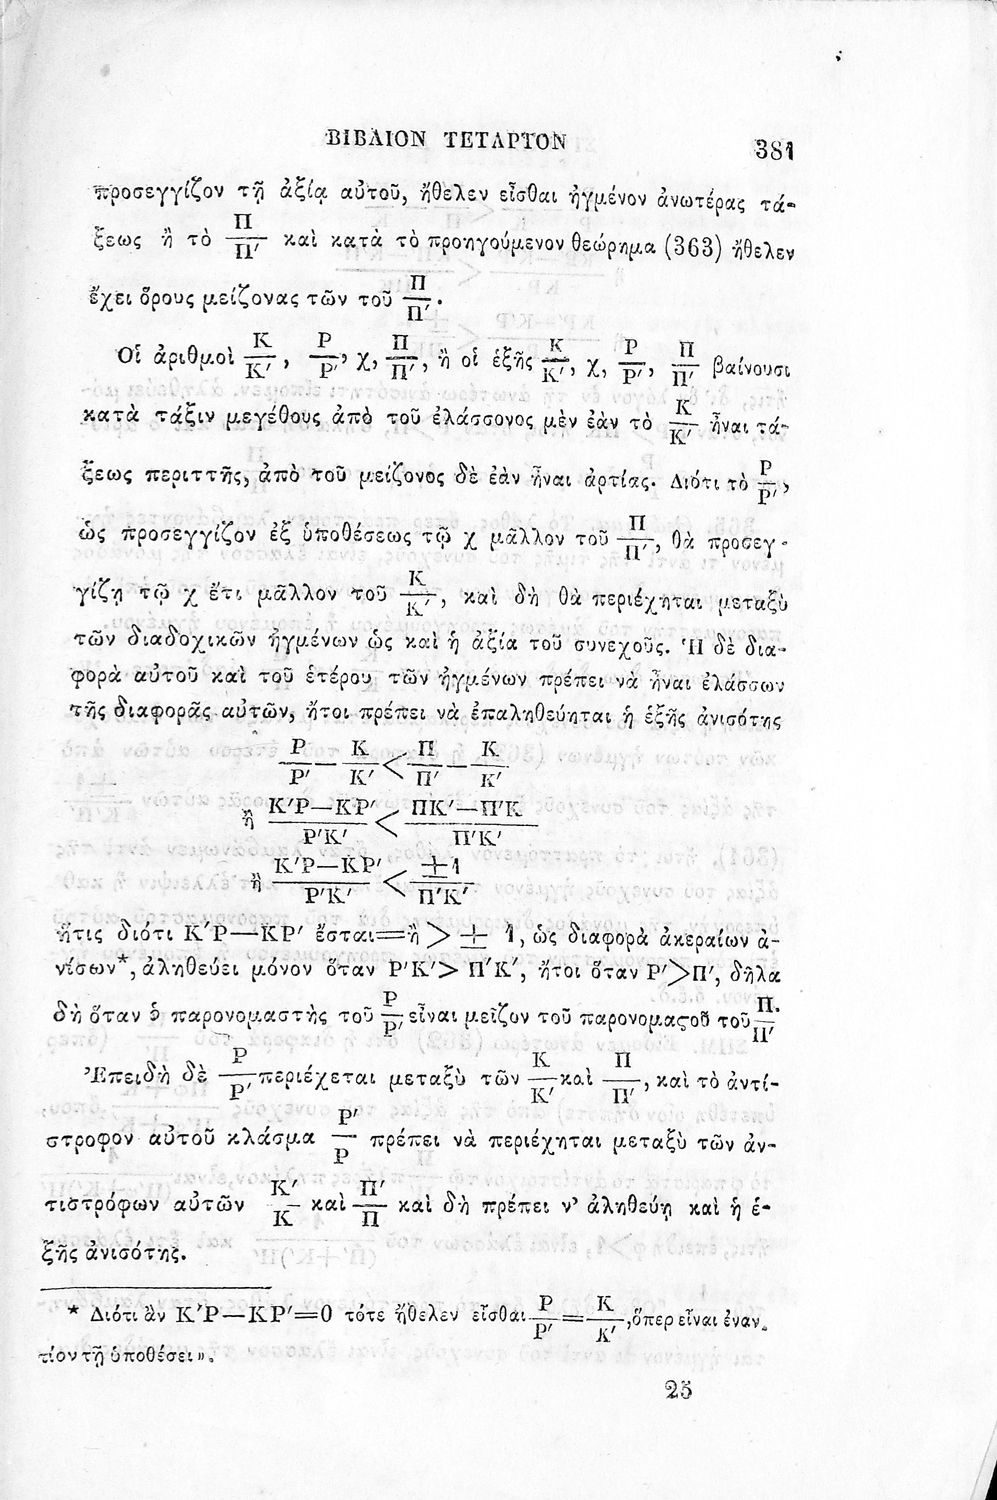 ΒΙΒΛΙΟΝ ΤΕΤΑΡΤΟΝ 381
προσεγγίζον τῇ ἀξίᾳ αὐτοῦ, ἤθελεν εἶσθαι ἠγμένον ἀνωτέρας τά-
ξεως ἢ τὸ Π/Π′ καὶ κατὰ τὸ προηγούμενον θεώρημα (363) ἤθελεν
ἔχει ὅρους μείζονας τῶν τοῦ Π/Π′.
Οἱ ἀριθμοὶ Κ/Κ′, Ρ/Ρ′, χ, Π/Π′, ἢ οἱ ἑξῆς Κ/Κ′, χ, Ρ/Ρ′, Π/Π′ βαίνουσι
κατὰ τάξιν μεγέθους ἀπὸ τοῦ ἐλάσσονος μὲν ἐὰν τὸ Κ/Κ′ ἦναι τά-
ξεως περιττῆς, ἀπὸ τοῦ μείζονος δὲ ἐὰν ἦναι ἀρτίας. Διότι τὸ Ρ/Ρ′,
ὡς προσεγγίζον ἐξ ὑποθέσεως τῷ χ μᾶλλον τοῦ Π/Π′, θὰ προσεγ-
γίζῃ τῷ χ ἔτι μᾶλλον τοῦ Κ/Κ′, καὶ δὴ θὰ περιέχηται μεταξὺ
τῶν διαδοχικῶν ἠγμένων ὡς καὶ ἡ ἀξία τοῦ συνεχοῦς. Ἡ δὲ δια-
φορὰ αὐτοῦ καὶ τοῦ ἑτέρου τῶν ἠγμένων πρέπει νὰ ἦναι ἐλάσσων
τῆς διαφορᾶς αὐτῶν, ἤτοι πρέπει νὰ ἐπαληθεύηται ἡ ἑξῆς ἀνισότης
Ρ/Ρ′ — Κ/Κ′ < Π/Π′ — Κ/Κ′
ἢ Κ′Ρ—ΚΡ′/Ρ′Κ′ < ΠΚ′—Π′Κ/Π′Κ′
ἢ Κ′Ρ—ΚΡ′/Ρ′Κ′ < ±1/Π′Κ′
ἥτις διότι Κ′Ρ—ΚΡ′ ἔσται=ἢ > ± 1, ὡς διαφορὰ ἀκεραίων ἀ-
νίσων*, ἀληθεύει μόνον ὅταν Ρ′Κ′> Π′Κ′, ἤτοι ὅταν Ρ′>Π′, δῆλα
δὴ ὅταν ὁ παρονομαστὴς τοῦ Ρ/Ρ′ εἶναι μεῖζων τοῦ παρονομαςοῦ τοῦ Π/Π′.
Ἐπειδὴ δὲ Ρ/Ρ′ περιέχεται μεταξὺ τῶν Κ/Κ′ καὶ Π/Π′, καὶ τὸ ἀντί-
στροφον αὐτοῦ κλάσμα Ρ′/Ρ πρέπει νὰ περιέχηται μεταξὺ τῶν ἀν-
τιστρόφων αὐτῶν Κ′/Κ καὶ Π′/Π καὶ δὴ πρέπει ν' ἀληθεύῃ καὶ ἡ ἑ-
ξῆς ἀνισότης.
* Διότι ἂν Κ′Ρ—ΚΡ′=0 τότε ἤθελεν εἶσθαι Ρ/Ρ′ = Κ/Κ′, ὅπερ εἶναι ἐναν-
τίον τῇ ὑποθέσει».
25